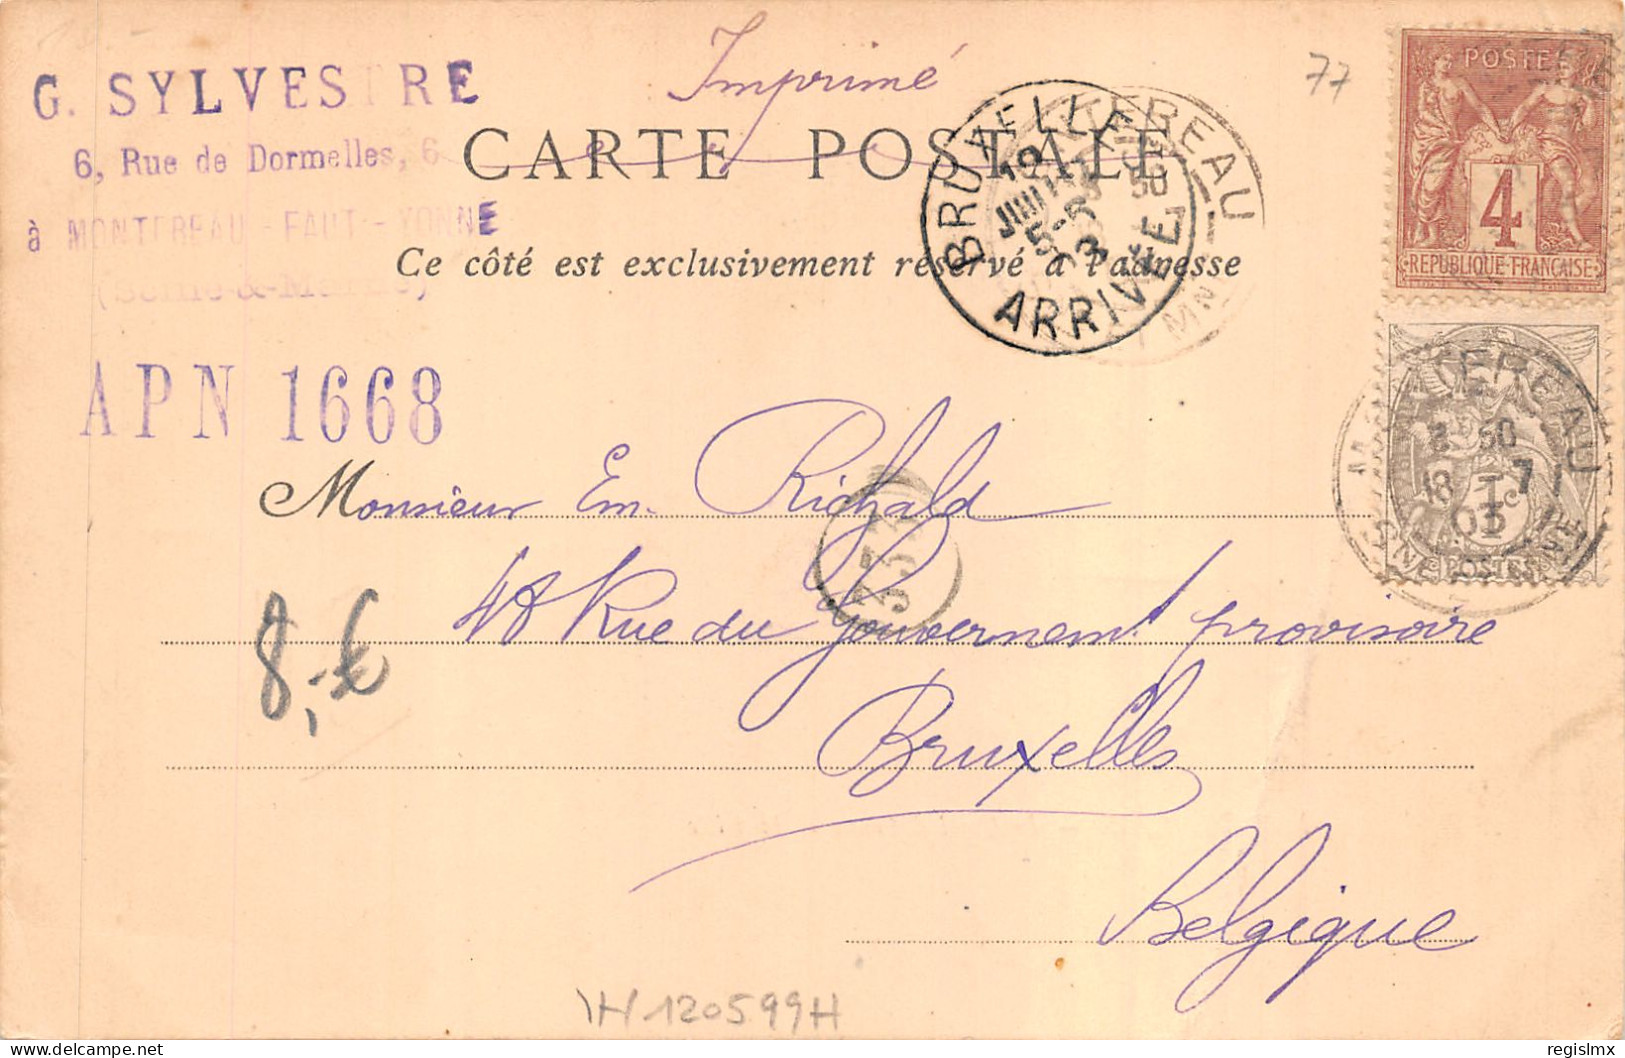 Imprimé
77
G. SYLVESTRE
6, Rue de Dormelles, 6
à MONTEREAU-FAUT-YONNE
(Seine-&-Marne)
CARTE POSTALE
Ce côté est exclusivement réservé à l'adresse
BRUXELLES
19
JUIL
5-S
03
ARRIVÉE
POSTE
4
REPUBLIQUE FRANÇAISE
MONTEREAU
8 50
18 7
03
POSTES
APN 1668
Monsieur Em. Richald
48 Rue du Gouvernement provisoire
Bruxelles
Belgique
332
8,-€
VH 120599H
delcampe.net
regislmx